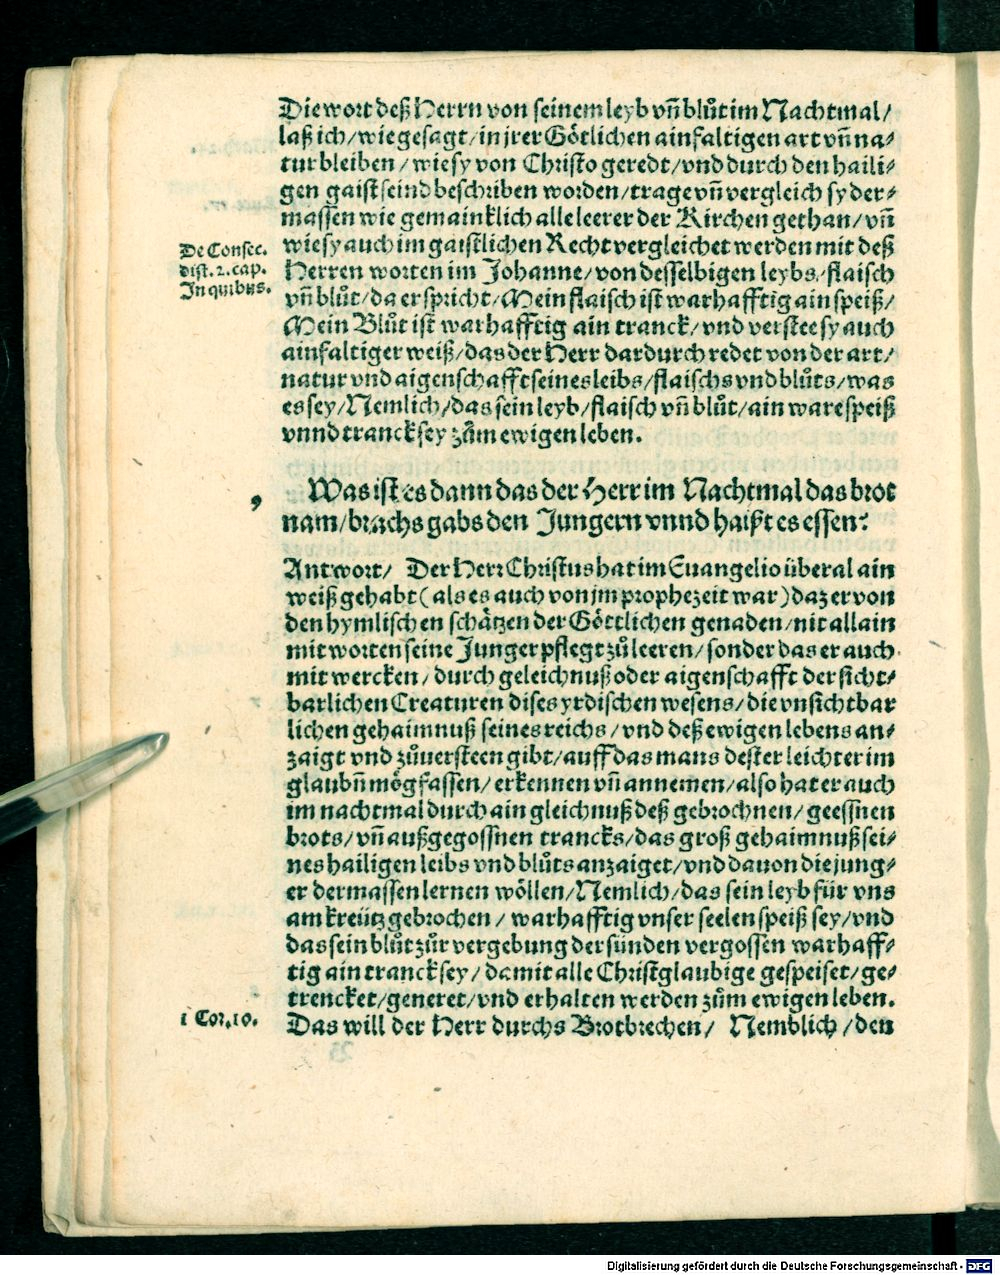 Die wort deß Herrn von seinem leyb vñ blůt im Nachtmal /
laß ich / wie gesagt / in jrer Götlichen ainfaltigen art vñ na⸗
tur bleiben / wie sy von Christo geredt / vnd durch den haili⸗
gen gaist seind beschriben worden / trage vñ vergleich sy der⸗
massen wie gemainklich alle leerer der Kirchen gethan / vñ
De Consec.
dist. 2. cap.
In quibus.
wie sy auch im gaistlichen Recht vergleichet werden mit deß
Herren worten im Johanne / von desselbigen leybs / flaisch
vñ blůt / da er spricht / Mein flaisch ist warhafftig ain speiß /
Mein Blůt ist warhafftig ain tranck / vnd verstee sy auch
ainfaltiger weiß / das der Herr dardurch redet von der art /
natur vnd aigenschafft seines leibs / flaischs vnd blůts / was
es sey / Nemlich / das sein leyb / flaisch vñ blůt / ain ware speiß
vnnd tranck sey zům ewigen leben.
Was ist es dann das der Herr im Nachtmal das brot
nam / brachs gabs den Jungern vnnd haißt es essen?
Antwort / Der Herr Christus hat im Euangelio überal ain
weiß gehabt ( als es auch von jm prophezeit war ) daz er von
den hymlischen schätzen der Göttlichen genaden / nit allain
mit worten seine Junger pflegt zů leeren / sonder das er auch
mit wercken / durch geleichnuß oder aigenschafft der sicht⸗
barlichen Creaturen dises yrdischen wesens / die vnsichtbar
lichen gehaimnuß seines reichs / vnd deß ewigen lebens an⸗
zaigt vnd zůuersteen gibt / auff das mans dester leichter im
glaubñ mög fassen / erkennen vñ annemen / also hat er auch
im nachtmal durch ain gleichnuß deß gebrochnen / geessnen
brots / vñ außgegossnen trancks / das groß gehaimnuß sei⸗
nes hailigen leibs vnd blůts anzaiget / vnd dauon die jung⸗
er dermassen lernen wöllen / Nemlich / das sein leyb für vns
am kreütz gebrochen / warhafftig vnser seelen speiß sey / vnd
das sein blůt zůr vergebung der sünden vergossen warhaff⸗
tig ain tranck sey / damit alle Christglaubige gespeiset / ge⸗
trencket / generet / vnd erhalten werden zům ewigen leben.
1 Cor. 10.
Das will der Herr durchs Brotbrechen / Nemblich / den
Digitalisierung gefördert durch die Deutsche Forschungsgemeinschaft - DFG